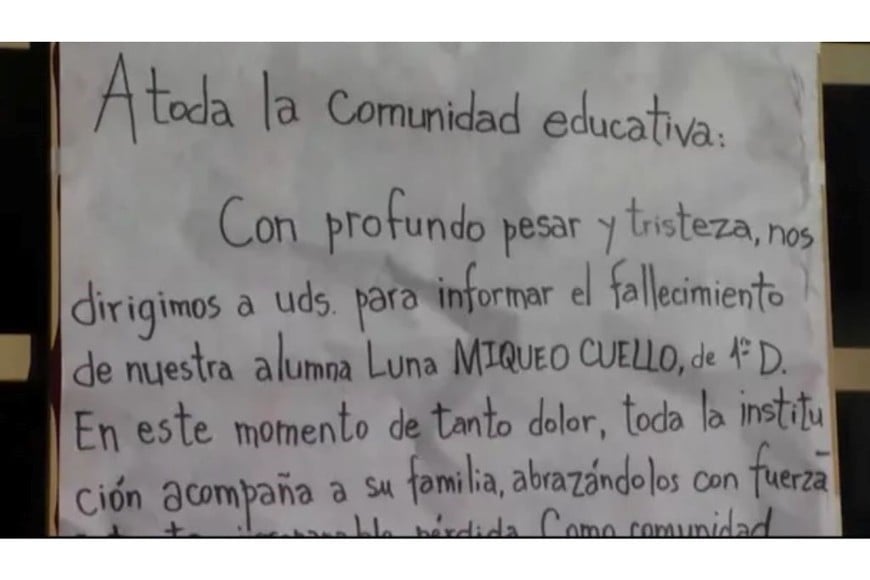 A toda la comunidad educativa:
Con profundo pesar y tristeza, nos
dirigimos a uds. para informar el fallecimiento
de nuestra alumna Luna MIQUEO CUELLO, de 1º D.
En este momento de tanto dolor, toda la institu
ción acompaña a su familia, abrazándolos con fuerza
pérdida. Como comunidad